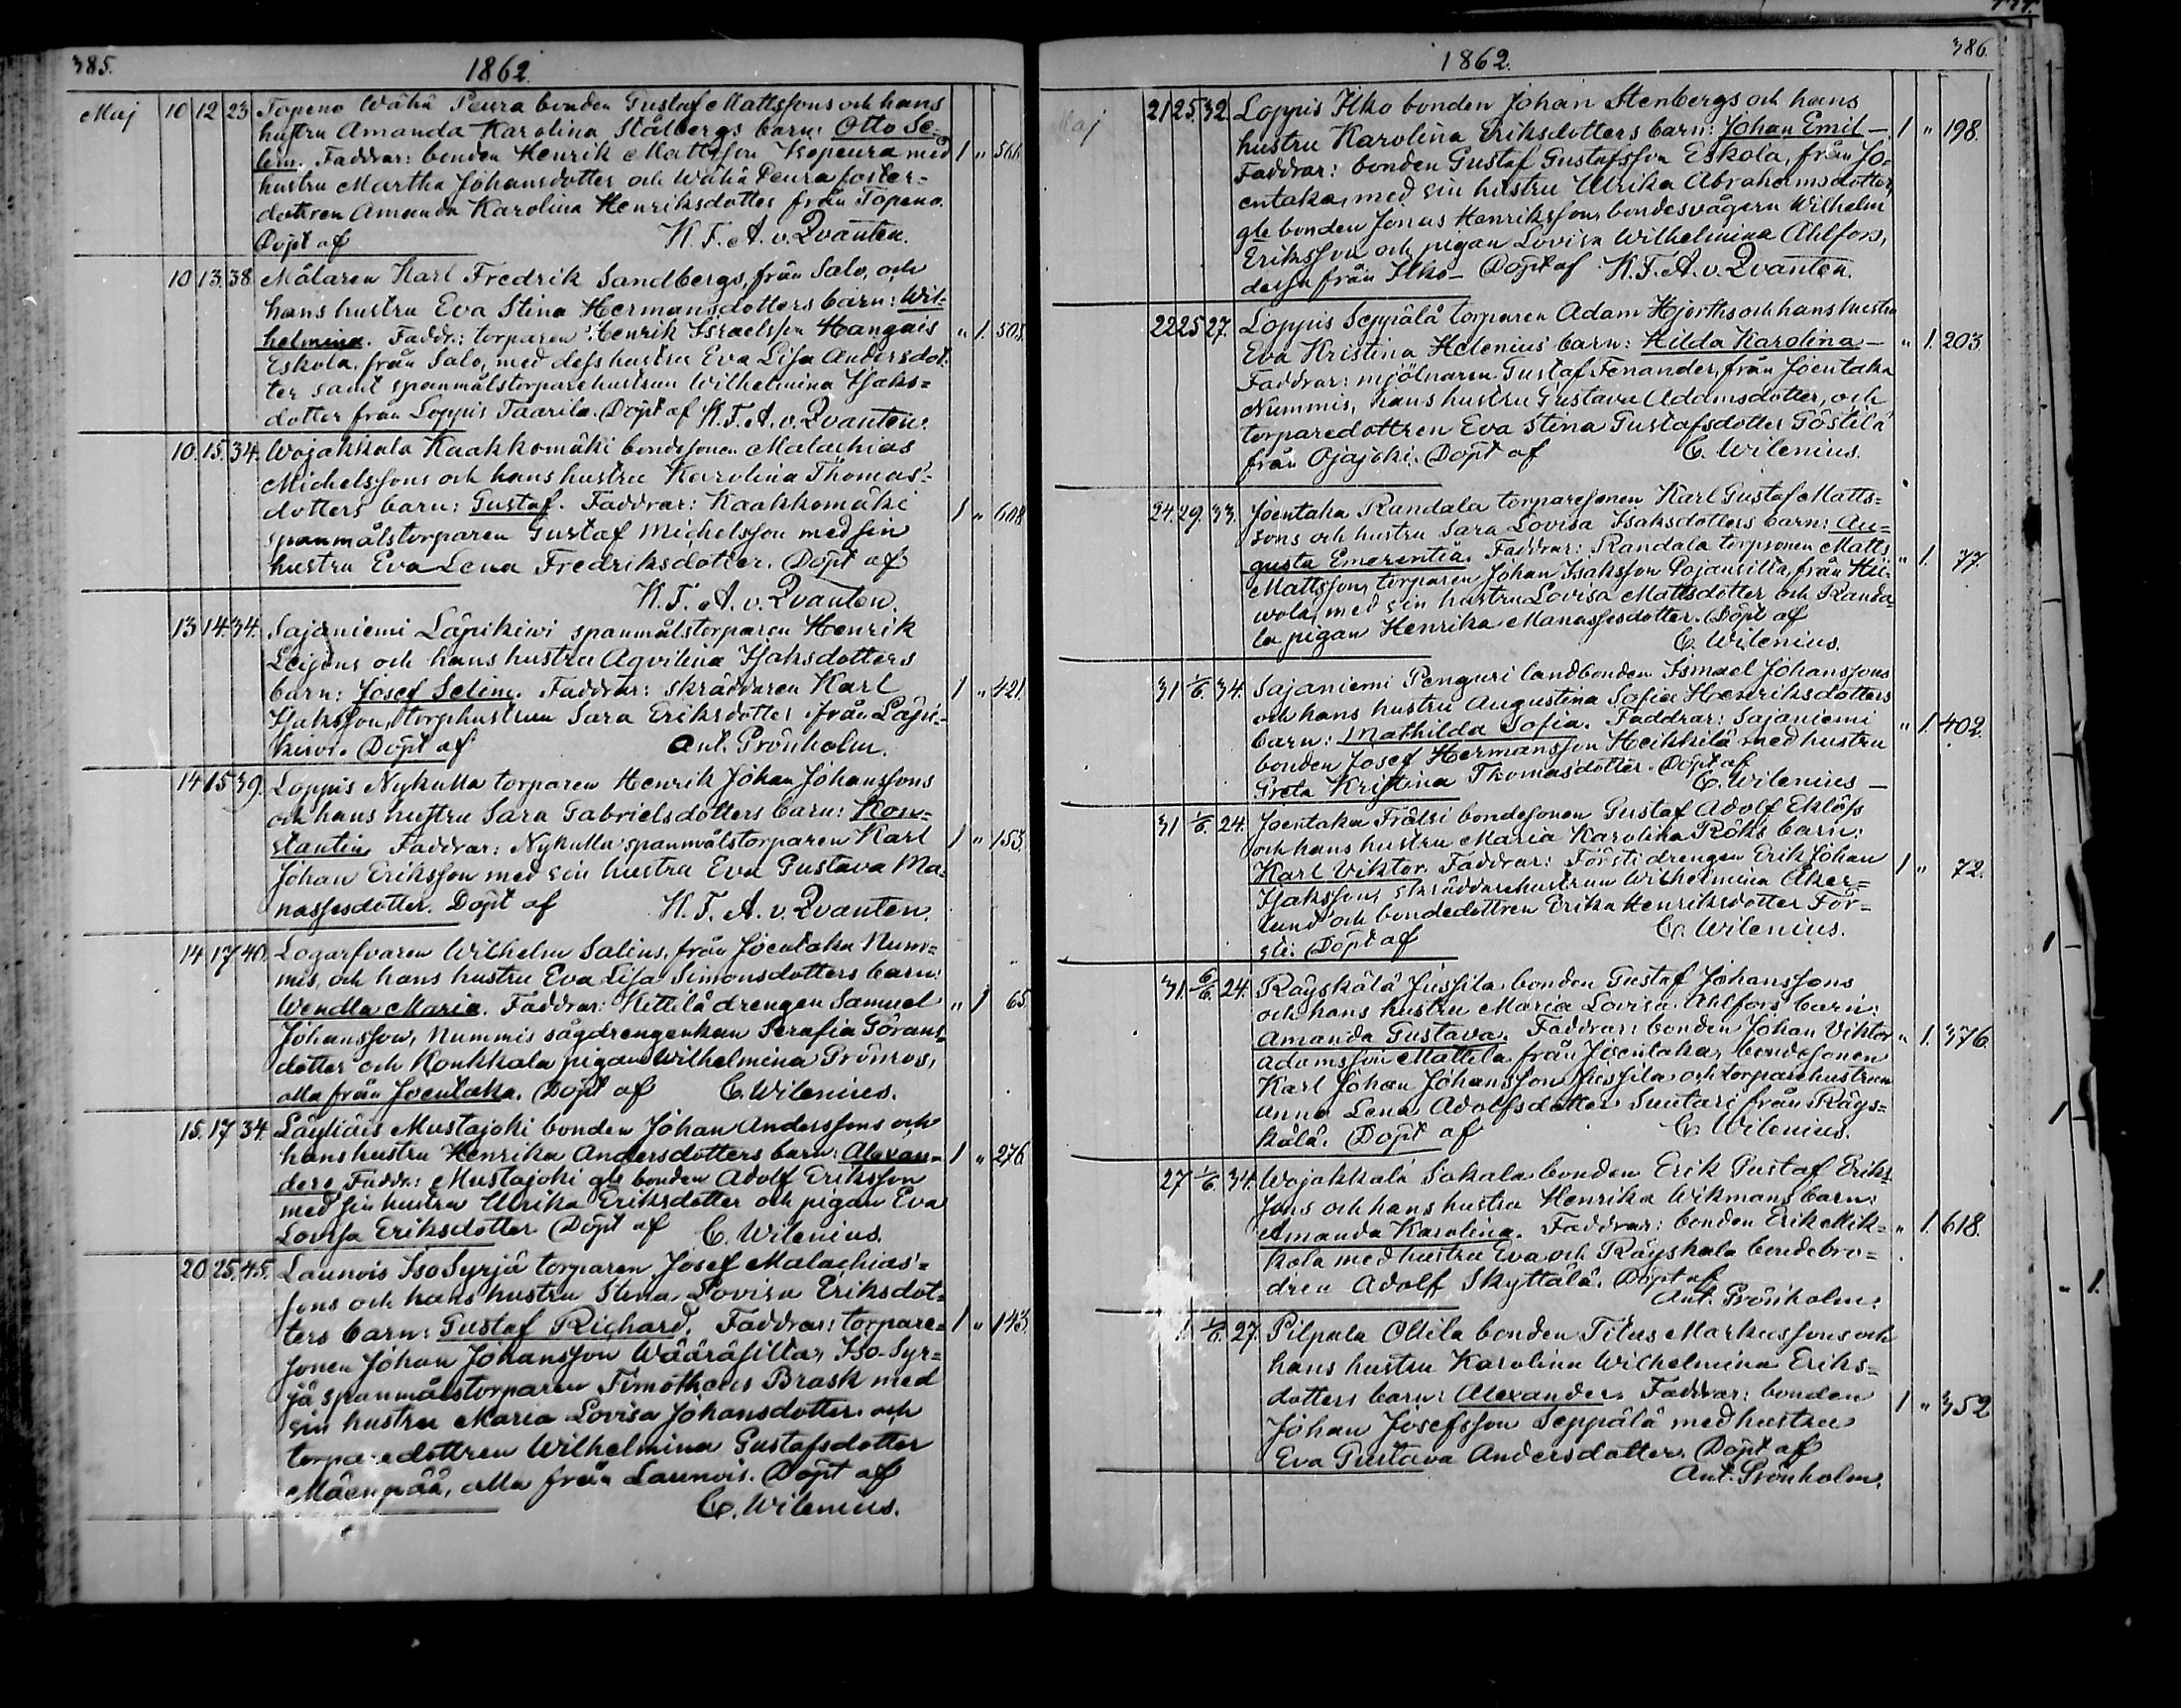 385.
1862.
Maj 10 12 23 Topeno Wähä Peura bonden Gustaf Mattssons och hans
hustru Amanda Karolina Stålbergs barn: Otto Se-
lim. Faddrar: bonden Henrik Mattsson Isopeura med 1 " 566
hustru Martha Johansdotter och Wähä Peura foster-
dottren Amanda Karolina Henriksdotter från Topeno.
Döpt af K. F. A. v. Qvanten.
10 13. 38. Målaren Karl Fredrik Sandbergs, från Salo, och
hans hustru Eva Stina Hermansdotters barn: Wil-
helmina. Faddr.: torparen Henrik Israelsson Hangais " 1. 505.
Eskola från Salo, med dess hustru Eva Lisa Andersdot-
ter samt spanmålstorparehustrun Wilhelmina Isaks-
dotter från Loppis Taarila. Döpt af K. F. A. v. Qvanten.
10. 15. 34. Wojakkala Kaakkomäki bondesonen Malachias
Michelssons och hans hustru Karolina Thomas-
dotters barn: Gustaf. Faddrar: Kaakkomäki 1 " 608
spanmålstorparen Gustaf Michelsson med sin
hustru Eva Lena Fredriksdotter. Döpt af
K. F. A. v. Qvanten.
13 14. 34. Sajaniemi Läpikiwi spanmålstorparen Henrik
Leijons och hans hustru Aqvilina Isaksdotters
barn: Josef Selim. Faddrar: skräddaren Karl 1 " 421.
Isaksson, torphustrun Sara Eriksdotter från Läpi-
kiwi. Döpt af Ant. Grönholm.
14 15 39. Loppis Nykulla torparen Henrik Johan Johanssons
och hans hustru Sara Gabrielsdotters barn: Kon-
stantin Faddrar: Nykulla spanmålstorparen Karl 1 " 153.
Johan Eriksson med sin hustru Eva Gustava Ma-
nassesdotter. Döpt af K. F. A. v. Qvanten.
14 17 40. Logarfvaren Wilhelm Salins, från Joentaka Num-
mis, och hans hustru Eva Lisa Simonsdotters barn:
Wendla Maria. Faddrar: Kittilä drengen Samuel " 1 65
Johansson, Nummis sågdrengenkan Serafia Görans-
dotter och Konkkala pigan Wilhelmina Grönros,
alla från Joentaka. Döpt af C. Wilenius.
15. 17 34. Läyliäis Mustajoki bonden Johan Anderssons och
hans hustru Henrika Andersdotters barn: Alexan- 1 " 276
der. Faddr.: Mustajoki gle bonden Adolf Eriksson
med sin hustru Ulrika Eriksdotter och pigan Eva
Lovisa Eriksdotter Döpt af C. Wilenius.
20. 25. 45. Launois Iso Syrjä torparen Josef Malachias-
sons och hans hustru Stina Lovisa Eriksdot-
ters barn: Gustaf Richard. Faddrar: torpare- 1 " 143.
sonen Johan Johansson Wääräsilta, Iso-Syr-
jä spanmålstorparen Timotheus Brask med
sin hustru Maria Lovisa Johansdotter och
torparedottren Wilhelmina Gustafsdotter
Mäenpää, alla från Launois. Döpt af
C. Wilenius.
386.
1862.
Maj 21 25. 32. Loppis Ilko bonden Johan Stenbergs och hans
hustru Karolina Eriksdotters barn: Johan Emil — 1 " 198.
Faddrar: bonden Gustaf Gustafsson Eskola, från Jo-
entaka, med sin hustru Ulrika Abrahamsdotter,
gle bonden Jonas Henriksson, bondesvågern Wilhelm
Eriksson och pigan Lovisa Wilhelmina Ahlfors,
dessa från Ilko — Döpt af K. F. A. v. Qvanten.
22 25 27. Loppis Seppälä torparen Adam Hjorths och hans hustru
Eva Kristina Helenius barn: Hilda Karolina — " 1. 203
Faddrar: mjölnaren Gustaf Fenander, från Joentaka
Nummis, hans hustru Gustava Adamsdotter, och
torparedottren Eva Stina Gustafsdotter Göstilä
från Ojajoki. Döpt af C. Wilenius.
24. 29. 33. Joentaka Randala torparesonen Karl Gustaf Matts-
sons och hustru Sara Lovisa Isaksdotters barn: Au-
gusta Emerentia. Faddrar: Randala torpsonen Matts " 1. 77.
Mattsson, torparen Johan Isaksson Pajansilta, från Hii-
wola, med sin hustru Lovisa Mattsdotter och Randa-
la pigan Henrika Manassesdotter. Döpt af
C. Wilenius.
31 1/6. 34. Sajaniemi Penguri landbonden Ismael Johanssons
och hans hustru Augustina Sofia Henriksdotters
barn: Mathilda Sofia. Faddrar: Sajaniemi " 1. 402.
bonden Josef Hermansson Heikkilä med hustru
Greta Kristina Thomasdotter. Döpt af
C. Wilenius —
31 1/6. 24. Joentaka Frälsi bondesonen Gustaf Adolf Eklöfs
och hans hustru Maria Karolina Röks barn:
Karl Viktor. Faddrar: Försti drengen Erik Johan 1 " 72.
Isaksson, skräddarehustrun Wilhelmina Åker-
lund och bondedottren Erika Henriksdotter För-
sti. Döpt af C. Wilenius.
31. 6/6. 24. Räyskälä Jussila bonden Gustaf Johanssons
och hans hustru Maria Lovisa Ahlfors barn:
Amanda Gustava. Faddrar: bonden Johan Viktor " 1. 376.
Adamsson Mattila från Joentaka, bondesonen
Karl Johan Johansson Jussila och torparehustrun
Anna Lena Adolfsdotter Suutari från Räys-
kälä. Döpt af C. Wilenius.
27 1/6. 34. Wojakkala Sakala bonden Erik Gustaf Eriks-
sons och hans hustru Henrika Wikmans barn:
Amanda Karolina. Faddrar: bonden Erik Mik- " 1. 618.
kola med hustru Eva och Räyskala bondebro-
dren Adolf Skyttälä. Döpt af
Ant. Grönholm.
1. 1/6. 27. Pilpala Ollila bonden Titus Markussons och
hans hustru Karolina Wilhelmina Eriks-
dotters barn: Alexander. Faddrar: bonden 1 " 352
Johan Josefsson Seppälä med hustru
Eva Gustava Andersdotter. Döpt af
Ant. Grönholm.